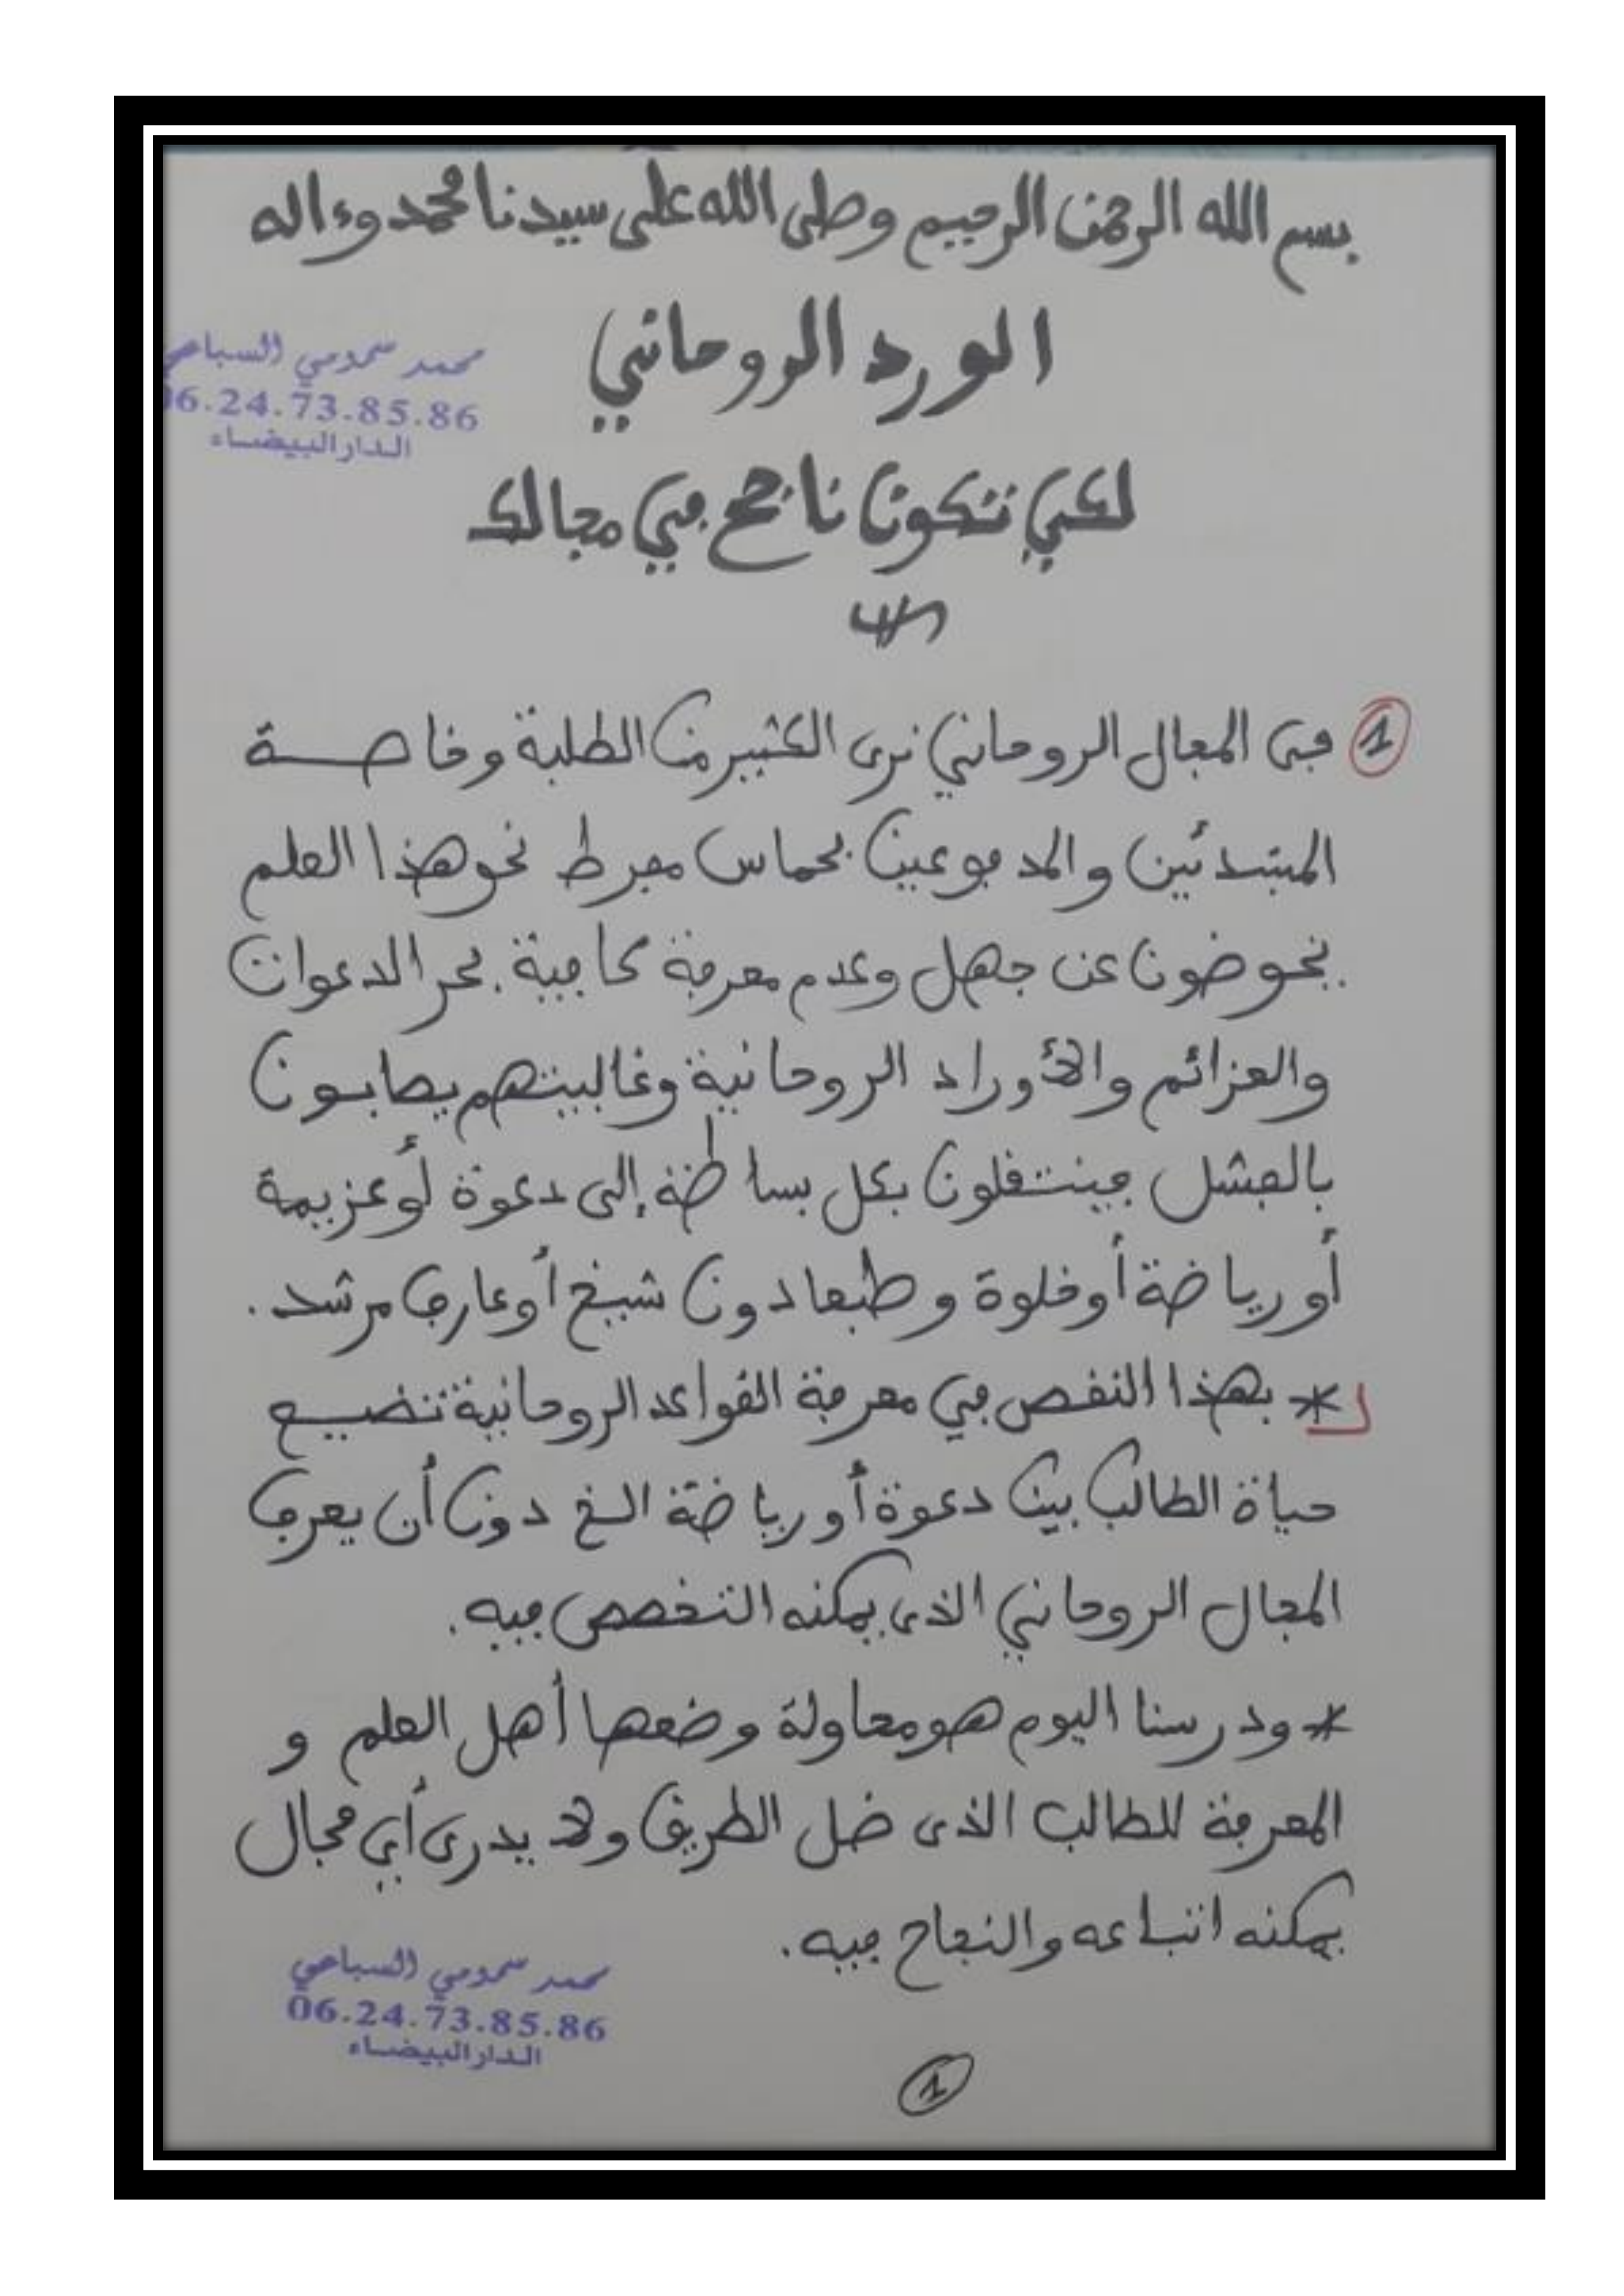 بسم الله الرحمن الرحيم وصلى الله على سيدنا محمد وءاله
الورد الروحاني
محمد سمومي السباعي
06.24.73.85.86
الدار البيضاء
لكي تكون ناجح في مجالك
1 في المجال الروحاني نرى الكثير من الطلبة وخاصة
المبتدئين والمدفوعين بحماس مفرط نحو هذا العلم
يخوضون عن جهل وعدم معرفة كافية بحر الدعوات
والعزائم والأوراد الروحانية وغالبيتهم يصابون
بالفشل فينتقلون بكل بساطة إلى دعوة أو عزيمة
أو رياضة أو خلوة وطبعا دون شيخ أو عارف مرشد.
* بهذا النقص في معرفة القواعد الروحانية تضيع
حياة الطالب بين دعوة أو رياضة الخ دون أن يعرف
المجال الروحاني الذى يمكنه التخصص فيه.
* ودرسنا اليوم هو محاولة وضعها أهل العلم و
المعرفة للطالب الذى ضل الطريق ولا يدرى أي مجال
يمكنه اتباعه والنجاح فيه.
محمد سمومي السباعي
06.24.73.85.86
الدار البيضاء
1